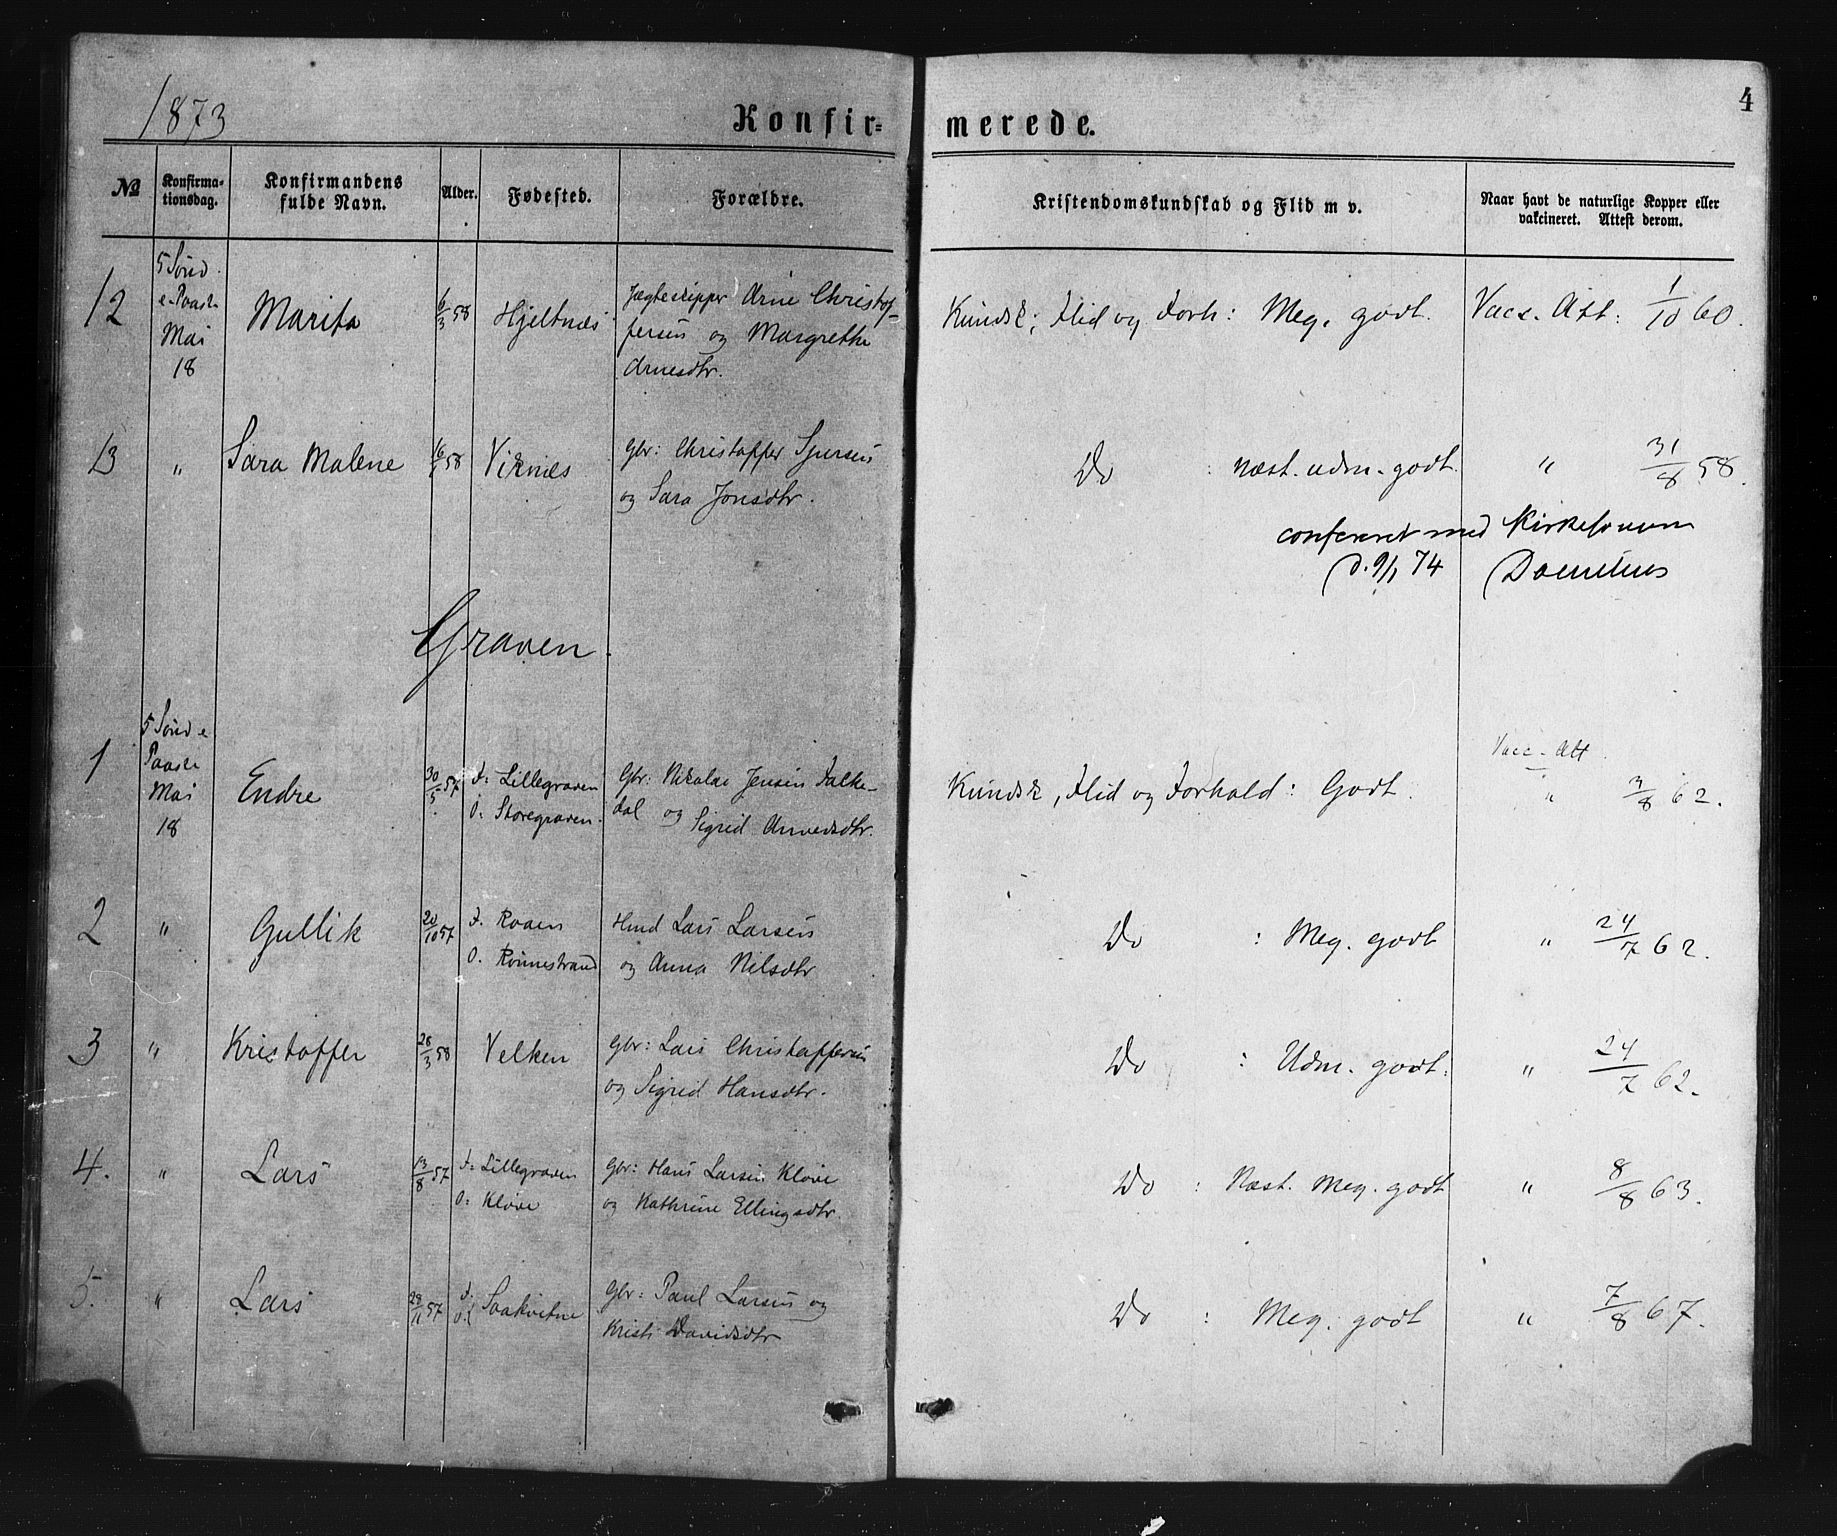 1873
Konfir=
merede.
4
No
Konfirma-
tionsdag.
Konfirmandens
fulde Navn.
Alder.
Fødested.
Forældre.
Kristendomskundskab og Flid m v.
Naar havt de naturlige Kopper eller
vakcineret. Attest derom.
12
5 Sønd.
e. Paaske
Mai
18
Marita
6/3 58
Hjeltnæs
Jægteskipper Arne Christof-
fersen og Margrethe
Arnesdtr.
Kundsk; Flid og Forh: Meg. godt.
Vacc. Att: 1/10 60.
13
"
Sara Malene
58
Viknæs
Gbr: Christoffer Sjursen
og Sara Jonsdtr.
Do : næst. udm. godt.
" 31/8 58.
confereret med
d. 9/1 74
Graven.
1
5 Sønd e
Paaske
Mai
18
Endre
30/5 57
F: Lillegraven
O: Storegraven.
Gbr: Nikolai Jensen Falke-
dal og Sigrid Arnvedsdtr.
Kundsk, Flid og Forhold: Godt.
Vacc. Att.
" 3/8 62.
2
"
Gullik
20/10 57
F. Roaen
O. Rønnestrand
Hmd Lars Larsen
og Anna Nilsdtr
Do : Meg. godt
" 24/7 62.
3
"
Kristoffer
28/3 58
Velken
Gbr: Lars Christoffersen
og Sigrid Hansdtr.
Do : Udm. godt.
" 24/7 62.
4.
"
Lars
13/8 57
F: Lillegraven
O: Kløve
Gbr: Hans Larsen Kløve
og Kathrine Ellingsdtr.
Do : Næst. Meg. godt
" 8/8 63.
5.
"
Lars
28/11 57
F:
O: Saakvitne
Gbr: Paul Larsen og
Kristi Davidsdtr
Do : Meg. godt
" 7/8 67.